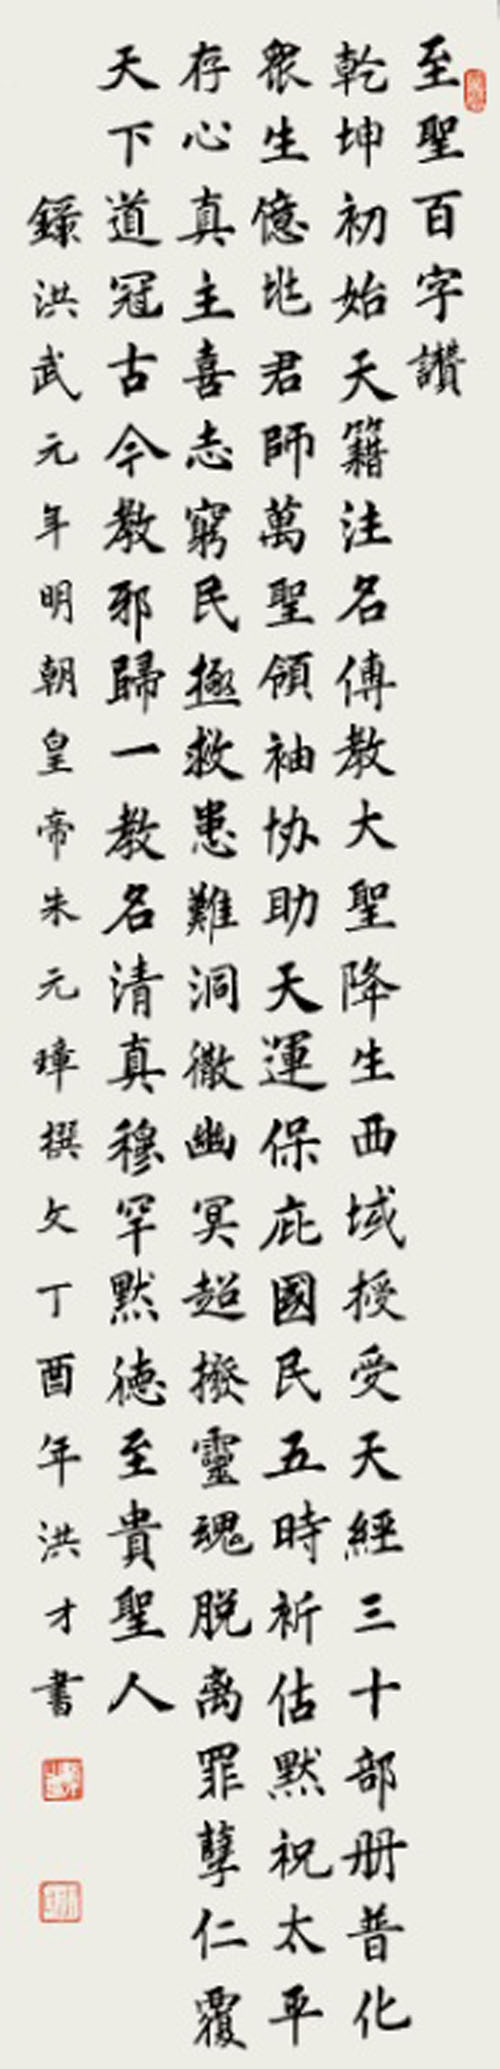 至聖百字讚
乾坤初始天籍注名傳教大聖降生西域授受天經三十部册普化
眾生億兆君師萬聖領袖协助天運保庇國民五時祈估默祝太平
存心真主喜志窮民拯救患難洞徹幽冥超撥靈魂脱离罪孽仁覆
天下道冠古今教邪歸一教名清真穆罕默德至貴聖人
錄洪武元年明朝皇帝朱元璋撰文丁酉年洪才書